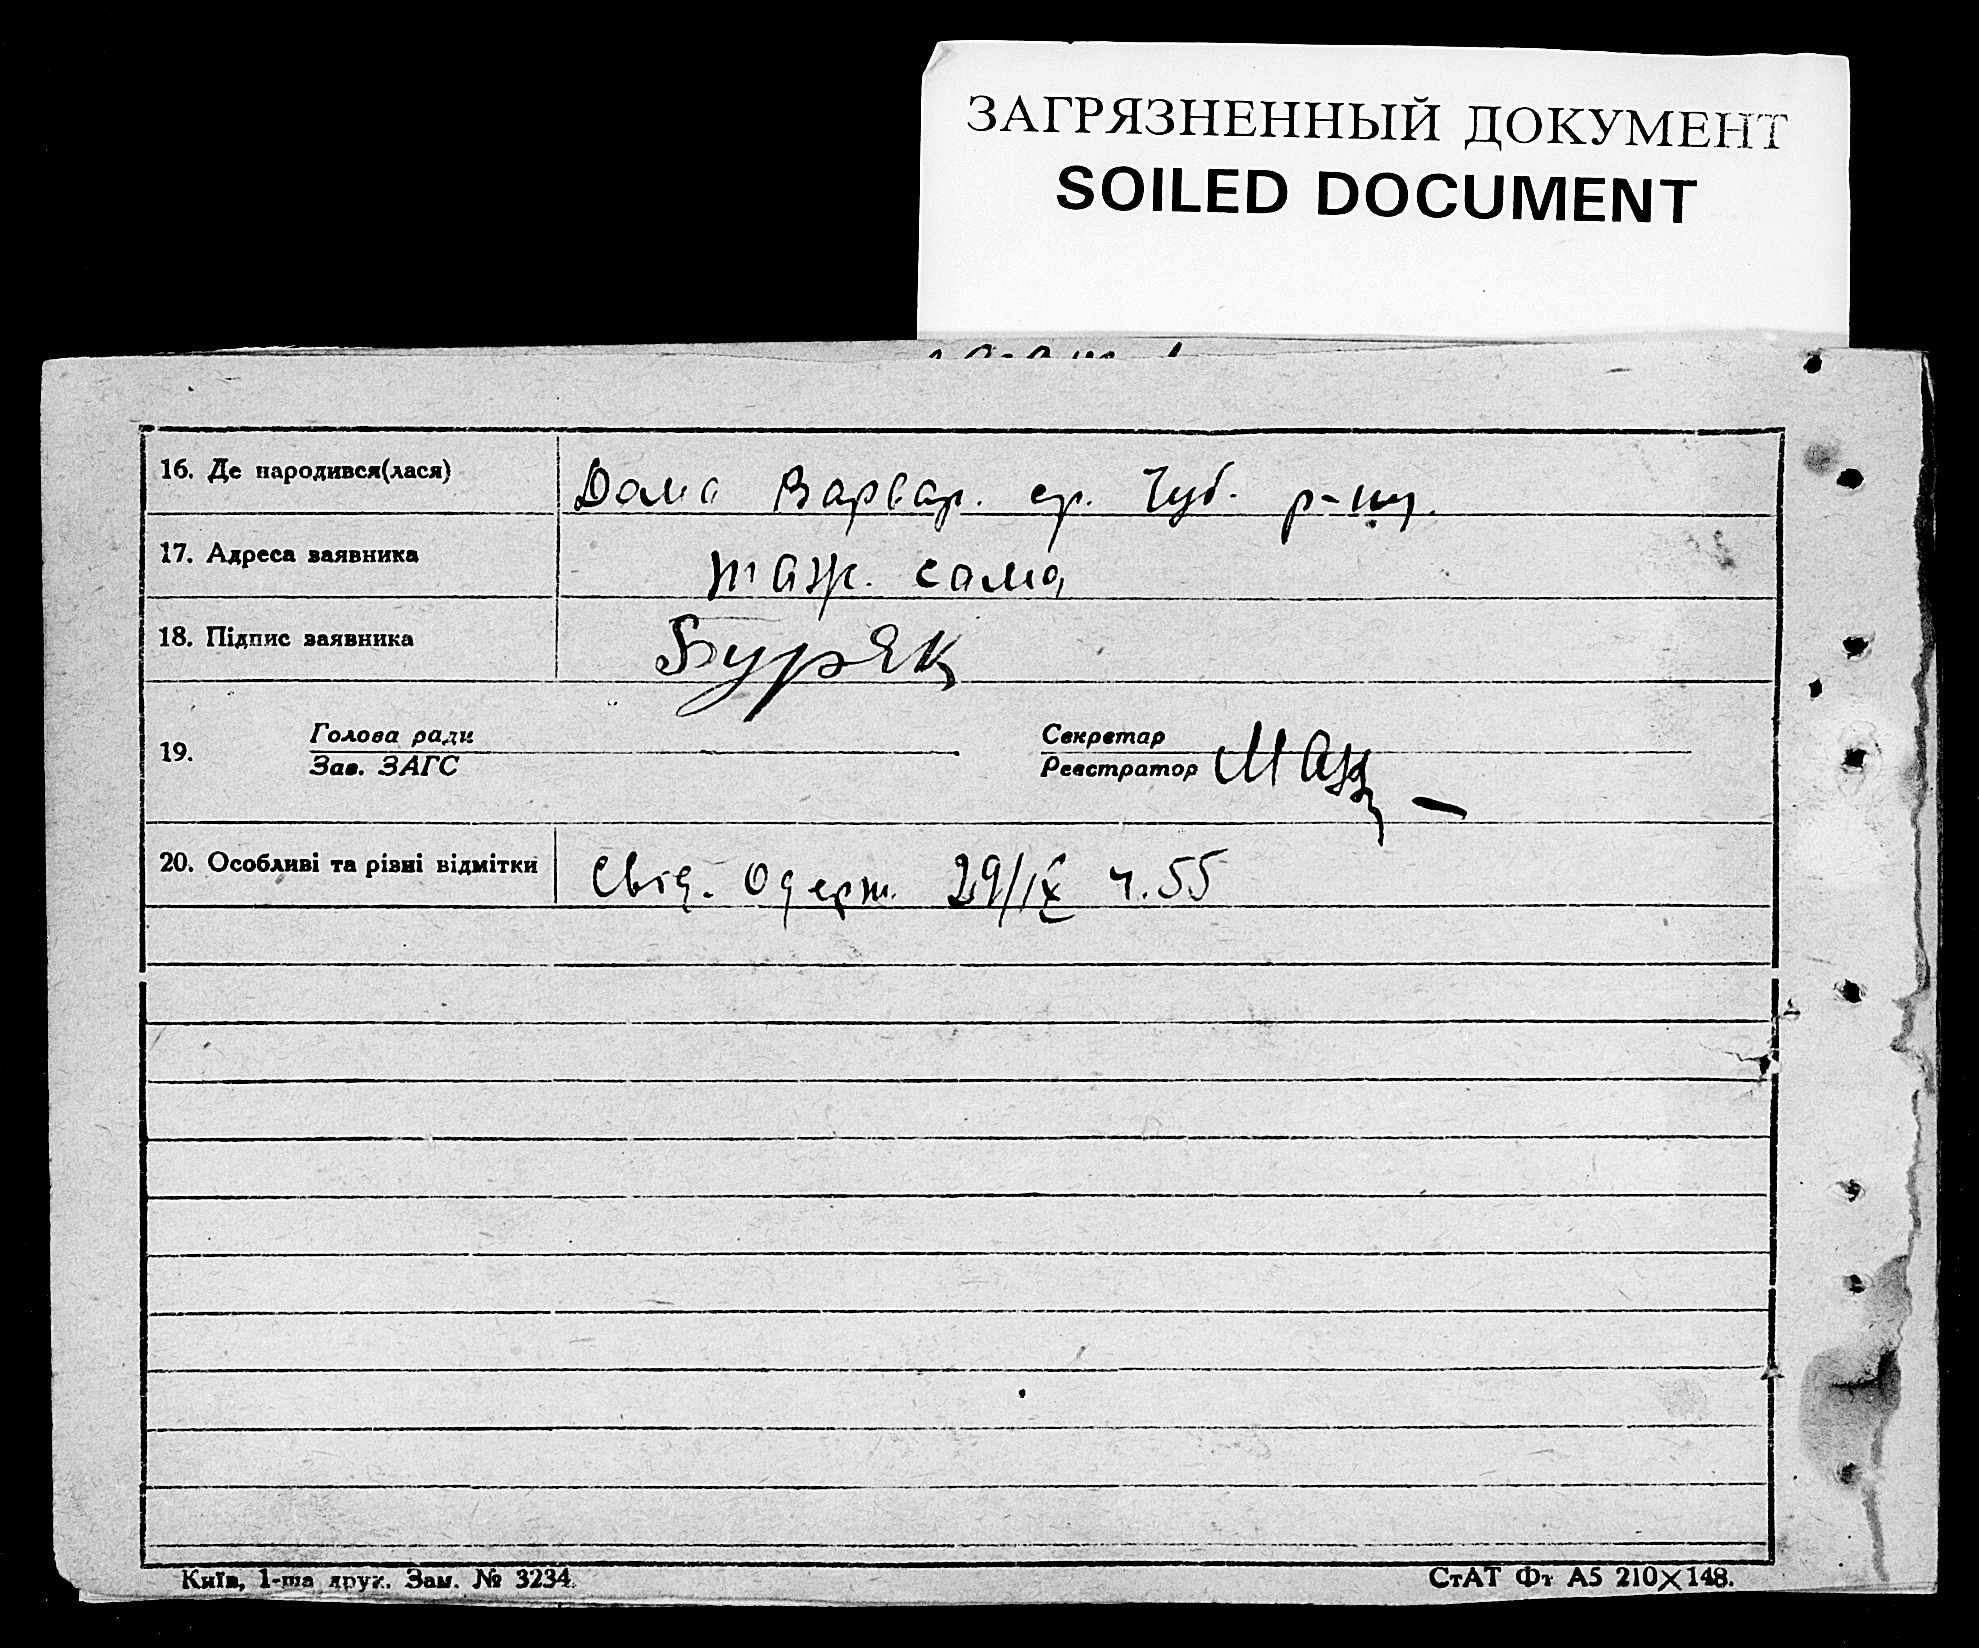 ЗАГРЯЗНЕННЫЙ ДОКУМЕНТ
SOILED DOCUMENT
16. Де народився(лася) Дома Варвар. ср. Чуб. р-ну.
17. Адреса заявника таж. сама
18. Підпис заявника Буряк
19. Голова ради
Зав. ЗАГС
Секретар
Реєстратор
20. Особливі та різні відмітки Свід. Одерж. 29/IX ч. 55
Київ, 1-ша друк. Зам. № 3234.
СтАТ Фт А5 210×148.